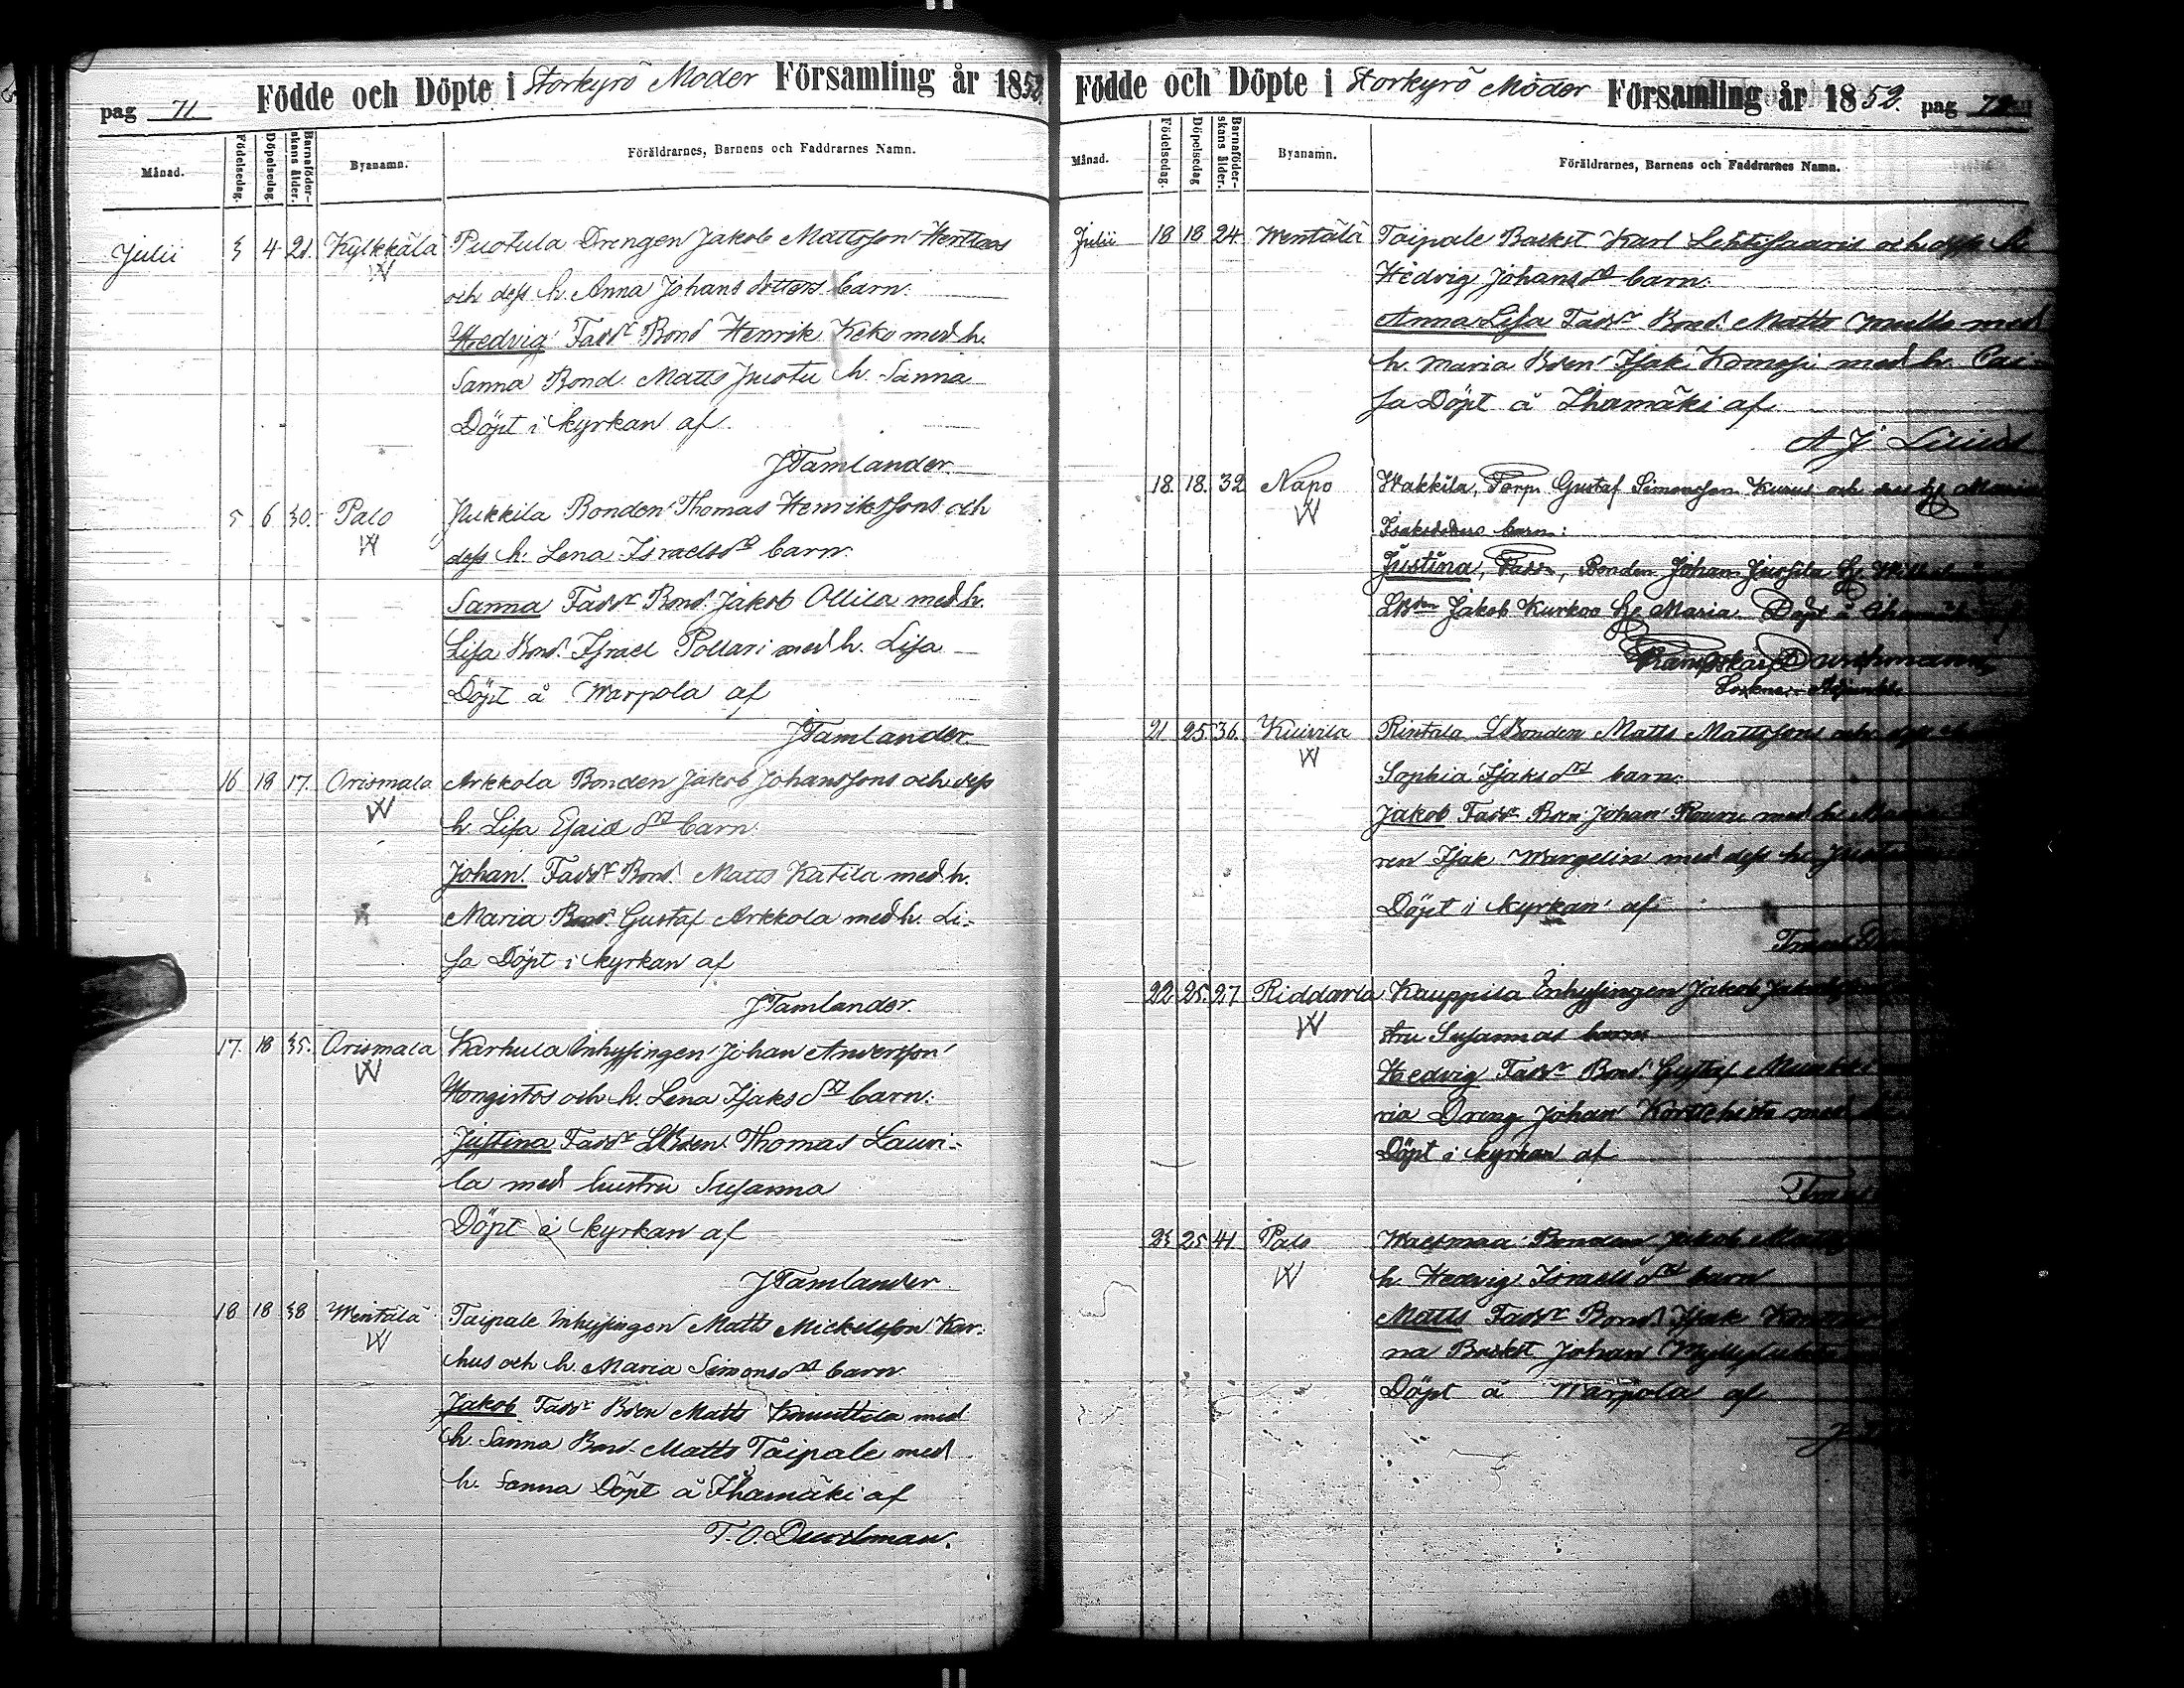 pag 71 Födde och Döpte i Storkyrö Moder Församling år 1852.
Månad. Födelsedag. Döpelsedag. Barnaföderskans ålder. Byanamn. Föräldrarnes, Barnens och Faddrarnes Namn.
Julii 3 4 21. Kylkkälä Puotula Drengen Jakob Mattsson
W och dess h. Anna Johans dotters barn.
Hedvig Fadd. Bond Henrik Keko med h.
Sanna Bond. Matts h. Sanna
Döpt i kyrkan af
J Tamlander.
5 6 30. Palo Jukkila Bonden Thomas Henrikssons och
W dess h. Lena Israelsd. barn.
Sanna Fadd. Bond. Jakob Ollila med h.
Lisa Bond. Israel Pollari med h. Lisa
Döpt å Warpola af
J Tamlander.
16 18 17. Orismala Arkkola Bonden Jakob Johanssons och dess
W h. Lisa Esaias d. barn.
Johan. Fadd. Bond. Matts Katila med h.
Maria Bond. Gustaf Arkkola med h. Li-
sa Döpt i kyrkan af
J Tamlander.
17. 18 35. Orismala Karhula Inhysingen Johan Andersson
W Hongistos och h. Lena Isaks d. barn.
Justina Fadd. LBden. Thomas Lauri-
la med hustru Susanna
Döpt i kyrkan af
J Tamlander
18 18 38 Wentälä Taipale Inhysingen Matts Mickelsson Kar-
W hus och h. Maria Simonsd. barn.
Jakob Fadd. Bden Matts Knuuttila med
h. Sanna Bond. Matts Taipale med
h. Sanna Döpt å Ihamäki af
T. O. Durchman.
Födde och Döpte i Storkyrö Moder Församling år 1852. pag 72
Månad. Födelsedag. Döpelsedag Barnaföderskans ålder. Byanamn. Föräldrarnes, Barnens och Faddrarnes Namn.
Julii 18 18 24 Wentälä Taipale Backst Karl Lehtisaaris och dess h.
Hedvig Johansd. barn.
Anna Lisa Fadd. Bond. Matts med
h. Maria Bden Isak Komsi med h. Cai-
sa Döpt å Ihamäki af
A J
18. 18. 32 Napo Hakkila, Torp. Gustaf Simonsson Kurus och Maria
W Isaksdotters barn:
Justina, Fadd, Bonden Johan Jussila
LBden Jakob Kurkoo Maria Döpt å
Frans Oskar Durchman
Sockne Adjunkt.
21 25. 36. Kuivila Rintala LBonden Matts Mattssons och dess
W Sophia Isaksd. barn.
Jakob Fadd. Bden Johan Rouru med h.
ren Isak Wargelin med dess h.
Döpt i kyrkan af
22 25. 27 Riddarla Kauppila Inhysingen Jakob
W stru Susannas barn
Hedvig Fadd. Bond. Gustaf
ria Dreng Johan med
Döpt i kyrkan af
23 25 41 Palo Waismaa Bonden Jakob
W h. Hedvig Israels d. barn
Matts Fadd. Bond. Isak
na Backst Johan
Döpt å Warpola af